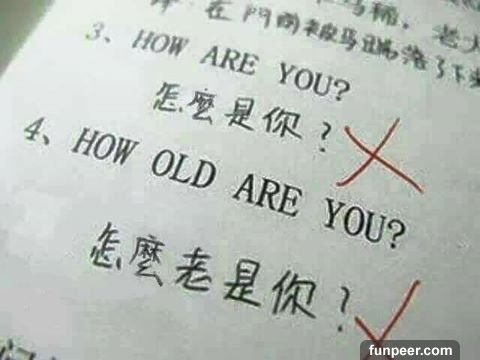 在門前被馬踢落了下來
3、HOW ARE YOU?
怎麼是你？
4、HOW OLD ARE YOU?
怎麼老是你？
funpeer.com